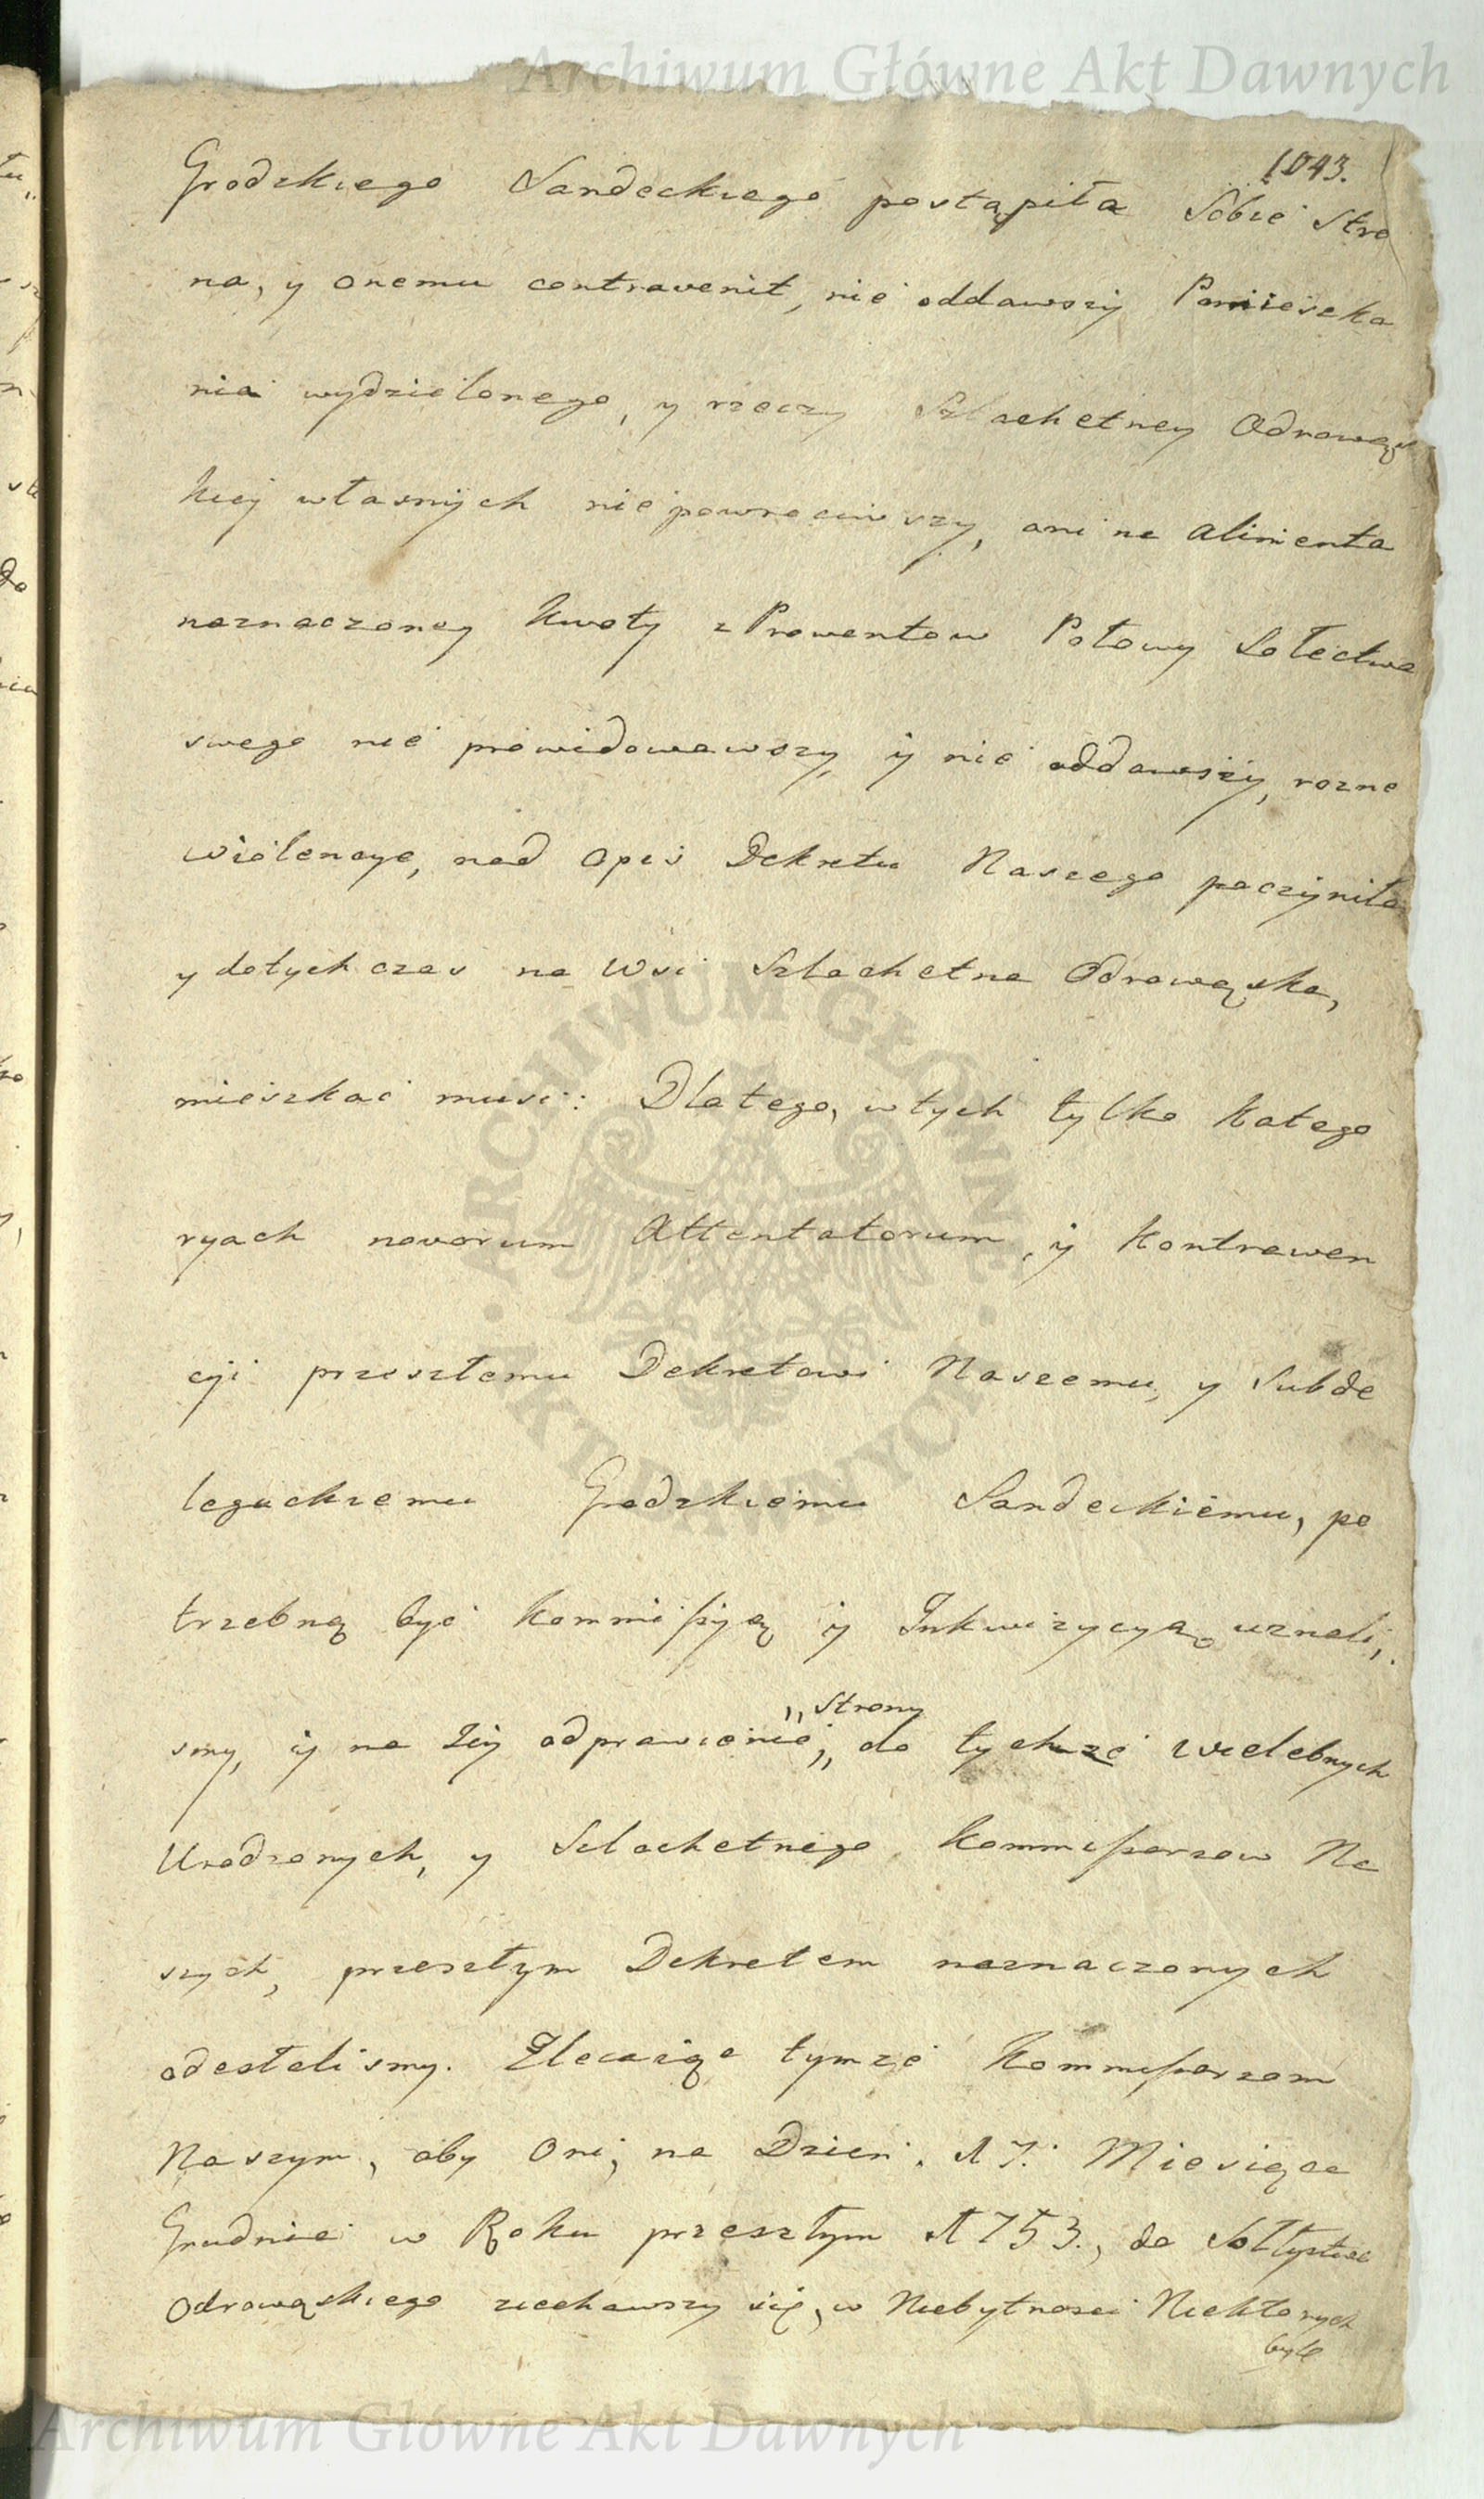 Archiwum Główne Akt Dawnych
1043.
Grodzkiego Sandeckiego postąpiła Sobie Stro
na, y onemu contravenit, nie oddawszy Pomieszka
nia wydzielonego, y rzeczy Szlachetney Odrowąs
kiey własnych nie powrociwszy, ani na alimenta
naznaczoney kwoty z Prowentow Połowy Sołectwa
swego nie prowidowawszy, y nie oddawszy, rozne
wiolencye, nad Opis Dekretu Naszego poczyniła
y dotychczas na Wsi Szlachetna Odrowąska,
mieszkać musi: Dlatego, w tych tylko Katego
ryach novorum Attentatorum, y Kontrawen
cyi przeszłemu Dekretowi Naszemu, y Subde
legackiemu Grodzkiemu Sandeckiemu, po
trzebną być Kommissyą y Inkwizycyą uznali,
smy, y na Iey odprawienie, do tychże Wielebnych
„Strony
Urodzonych, y Szlachetnego Kommissarzow Na
szych, przeszłym Dekretem naznaczonych
odesłalismy. Zlecaiąc tymże Kommissarzom
Naszym, aby Oni, na Dzien 17. Miesiąca
Grudnia w Roku przeszłym 1753., do Sołtystwa
Odrowąskiego ziechawszy się, w Niebytnosci Niektorych
byle
ARCHIWUM GŁÓWNE AKT DAWNYCH
Archiwum Główne Akt Dawnych